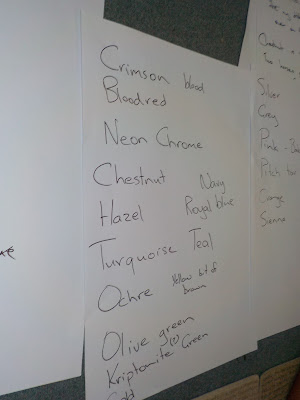 Crimson blood
Bloodred
Neon Chrome
Chestnut Navy
Hazel Royal blue
Turquoise Teal
Ochre yellow bit of
brown
Olive green
(?)
Kriptomite Green
Gold
Silver
Grey
Pink
Pitch
Orange
Sienna